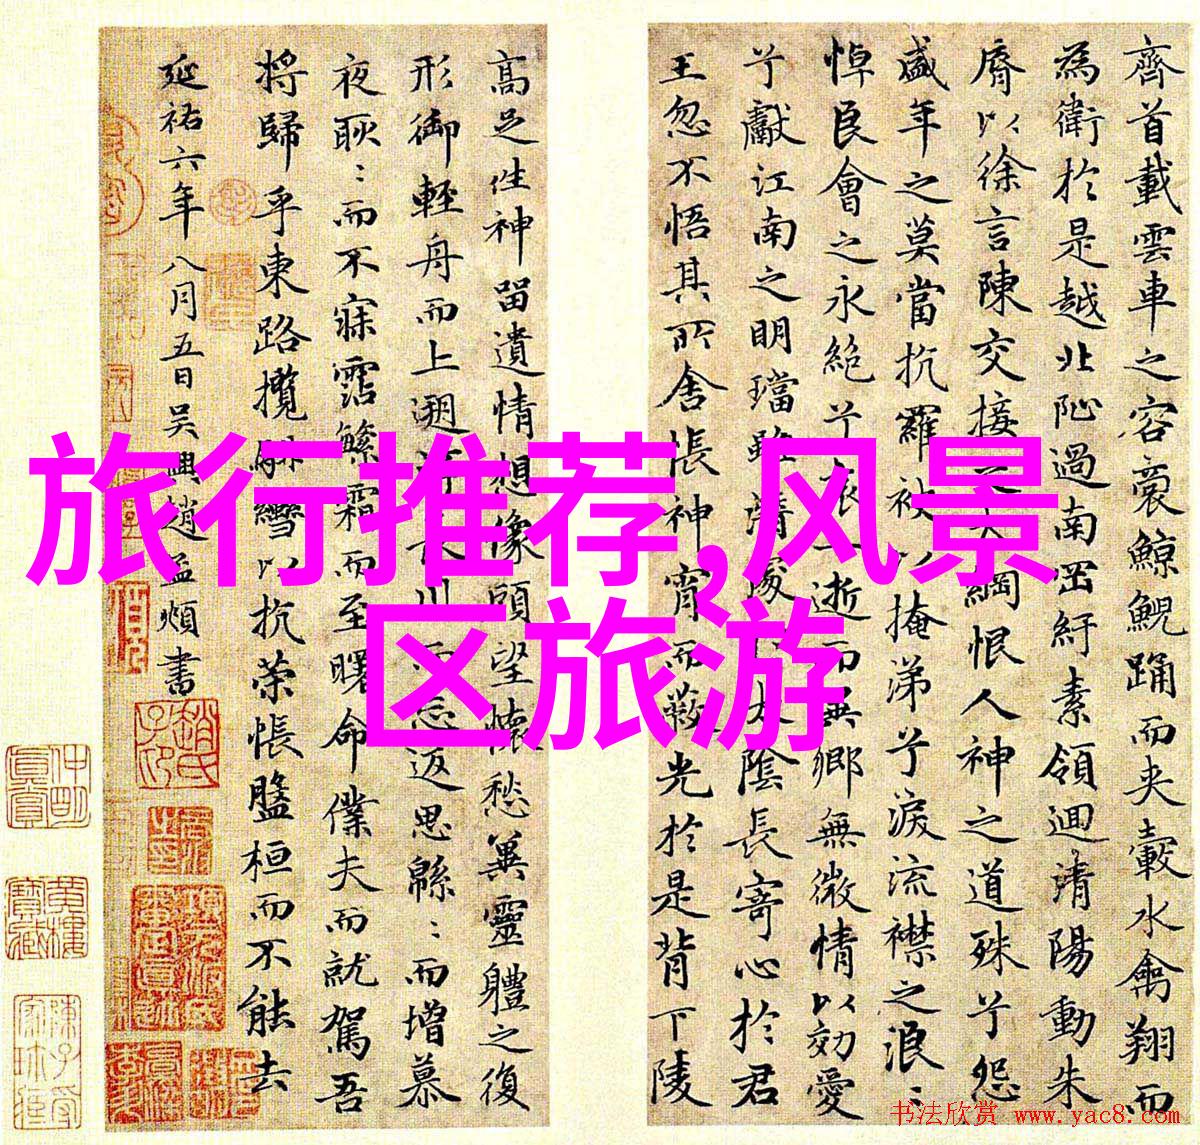 齊首載雲車之容裔鯨鯢踊而夾轂水禽翔而
為衛於是越北沚過南岡紆素領迴清陽動朱
脣以徐言陳交接之大綱恨人神之道殊兮怨
盛年之莫當抗羅袂以掩涕兮淚流襟之浪:
悼良會之永絕兮哀一逝而無鄉無微情以効愛
兮獻江南之明璫雖潛處於太陰長寄心於君
王忽不悟其所舍悵神宵而蔽光於是背下陵
高足往神留遺情想像頋望懷愁兾靈軆之復
形御輕舟而上遡浮長川而忘返思緜:而增慕
夜耿:而不寐霑繁霜而至曙命僕夫而就駕吾
將歸乎東路攬騑轡以抗策悵盤桓而不能去
延祐六年八月五日吳興趙孟頫書
旅行推荐,风景
区旅游
书法欣赏 www.yac8.com